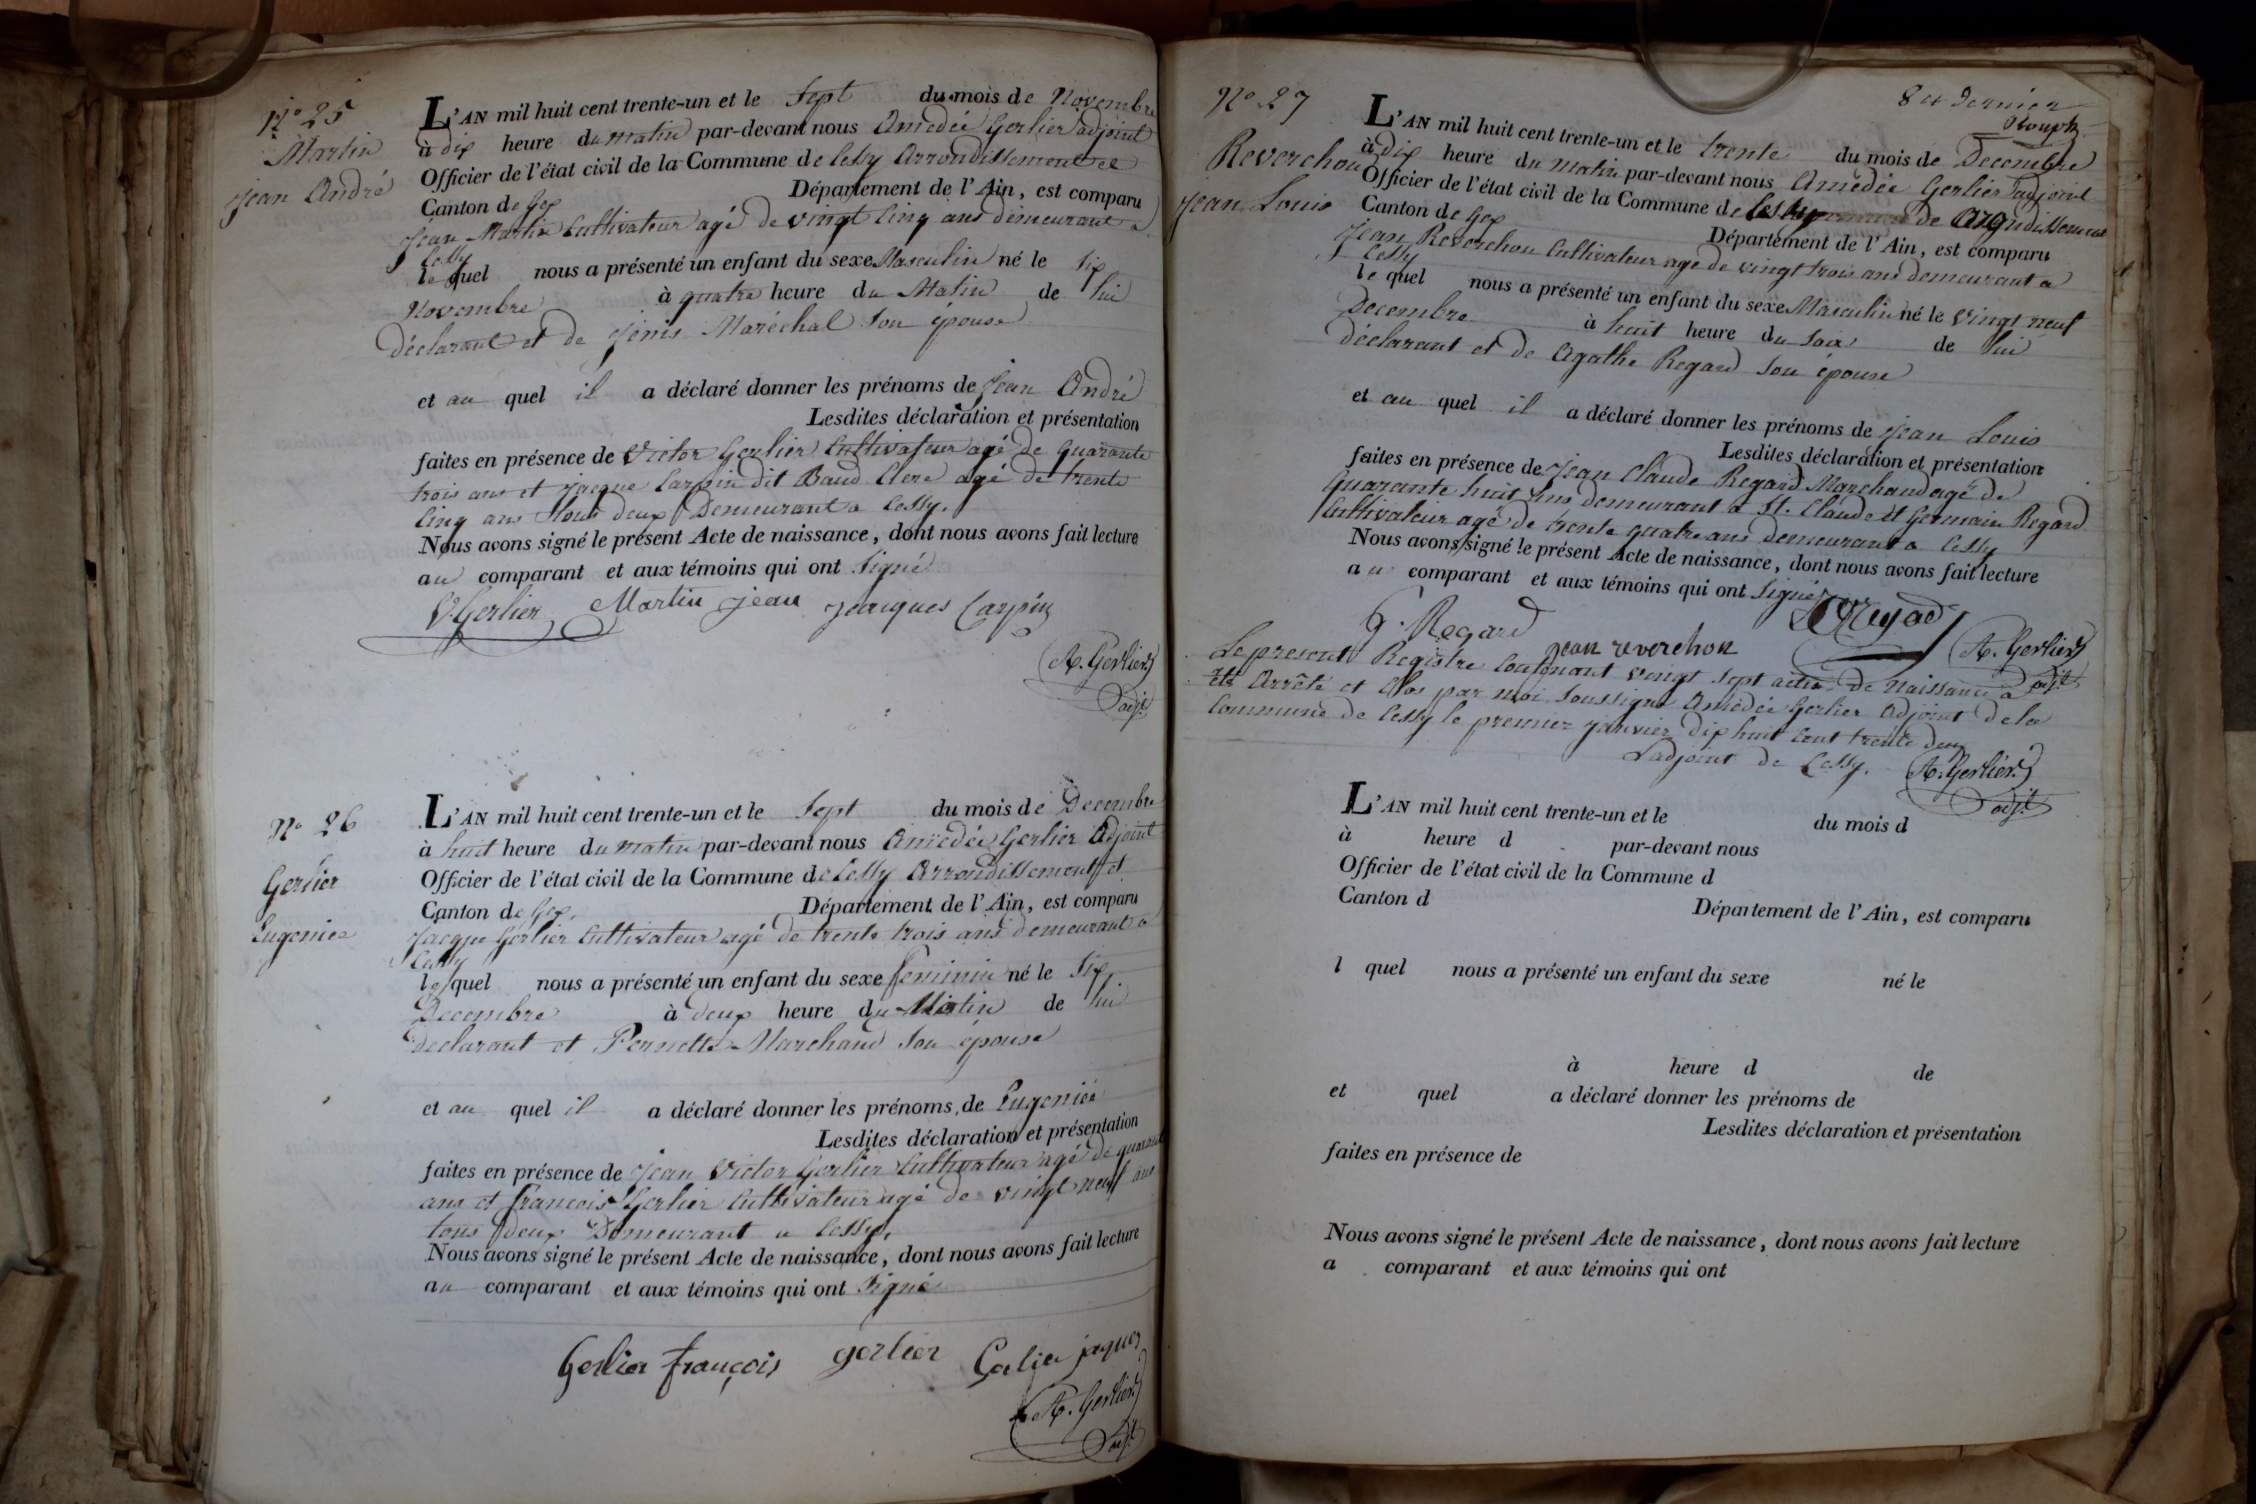 N° 25
Martin
Jean André
L'AN mil huit cent trente-un et le Sept du mois de Novembre
à dix heure du matin par-devant nous Amedée Gerlier adjoint
Officier de l'état civil de la Commune de Cessy Arrondissement et
Canton de Gex Département de l'Ain, est comparu
Jean Martin Cultivateur agé de vingt Cinq ans demeurant a
Cessy
le quel nous a présenté un enfant du sexe Masculin né le Six
Novembre à quatre heure du Matin de lui
déclarant et de Jenis Maréchal Son épouse
et au quel il a déclaré donner les prénoms de Jean André
Lesdites déclaration et présentation
faites en présence de Victor Gerlier Cultivateur agé de quarante
trois ans et Jacque Carpin dit Baud Clere agé de trente
Cinq ans tous deux Demeurant a Cessy.
Nous avons signé le présent Acte de naissance, dont nous avons fait lecture
au comparant et aux témoins qui ont Signé
V. Gerlier Martin jean jacques Carpin
A. Gerlier
adjt
N° 26
Gerlier
Eugenie
L'AN mil huit cent trente-un et le Sept du mois de Decembre
à huit heure du matin par-devant nous Amedée Gerlier Adjoint
Officier de l'état civil de la Commune de Cessy Arrondissement et
Canton de Gex. Département de l'Ain, est comparu
Jacque Gerlier Cultivateur agé de trente trois ans demeurant a
Cessy
le quel nous a présenté un enfant du sexe feminin né le Six
Decembre à deux heure du Matin de lui
declarant et Pernette Marchand Son épouse
et au quel il a déclaré donner les prénoms de Eugenie
Lesdites déclaration et présentation
faites en présence de Jean Victor Gerlier Cultivateur agé de quarante
ans et francois Gerlier Cultivateur agé de vingt neuf ans
tous deux Demeurant a Cessy.
Nous avons signé le présent Acte de naissance, dont nous avons fait lecture
au comparant et aux témoins qui ont Signé
Gerlier françois gerlier Gerlier jaques
A. Gerlier
adjt
8 et Dernier
N° 27
Reverchon
Jean Louis
L'AN mil huit cent trente-un et le trente du mois de Decembre
à Dix heure du matin par-devant nous Amédée Gerlier adjoint
Officier de l'état civil de la Commune de Cessy de Arrondissement
Canton de Gex Département de l'Ain, est comparu
Jean Reverchon Cultivateur age de vingt trois ans demeurant a
Cessy
le quel nous a présenté un enfant du sexe Masculin né le vingt neuf
Decembre à huit heure du Soir de lui
déclarant et de Agathe Regard Son épouse
et au quel il a déclaré donner les prénoms de Jean Louis
Lesdites déclaration et présentation
faites en présence de Jean Claude Regard Marchand agé de
Quarante huit ans demeurant a St. Claude et Germain Regard
Cultivateur agé de trente quatre ans demeurant a Cessy
Nous avons signé le présent Acte de naissance, dont nous avons fait lecture
au comparant et aux témoins qui ont Signé
G. Regard jean reverchon Regad A. Gerlier
adjt
Le present Registre Contenant vingt Sept actes de Naissance a
été Arrêté et Clos par moi Soussigné Amédée Gerlier Adjoint de la
Commune de Cessy le premier janvier dix huit Cent trente deux
L'adjoint de Cessy. A. Gerlier
adjt
L'AN mil huit cent trente-un et le du mois d
à heure d par-devant nous
Officier de l'état civil de la Commune d
Canton d Département de l'Ain, est comparu
l quel nous a présenté un enfant du sexe né le
à heure d de
et quel a déclaré donner les prénoms de
Lesdites déclaration et présentation
faites en présence de
Nous avons signé le présent Acte de naissance, dont nous avons fait lecture
a comparant et aux témoins qui ont